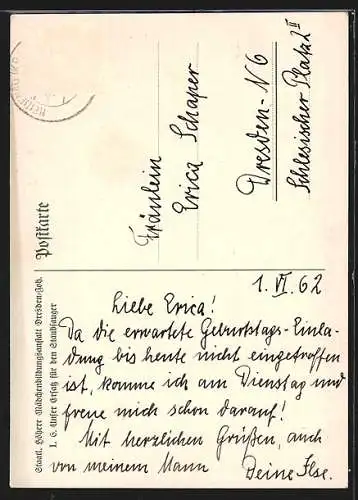 Postkarte
Fräulein
Erica Schaper
Dresden-N 6
Schlesischer Platz
Staatl. Höhere Mädchenbildungsanstalt Dresden-Joh.
I. G. Unser Ersatz für den Staubsauger
1. VI. 62
Liebe Erica!
Da die erwartete Geburtstags-Einla-
dung bis heute nicht eingetroffen
ist, komme ich am Dienstag und
freue mich schon darauf!
Mit herzlichen Grüßen, auch
von meinem Mann
Deine Ilse.